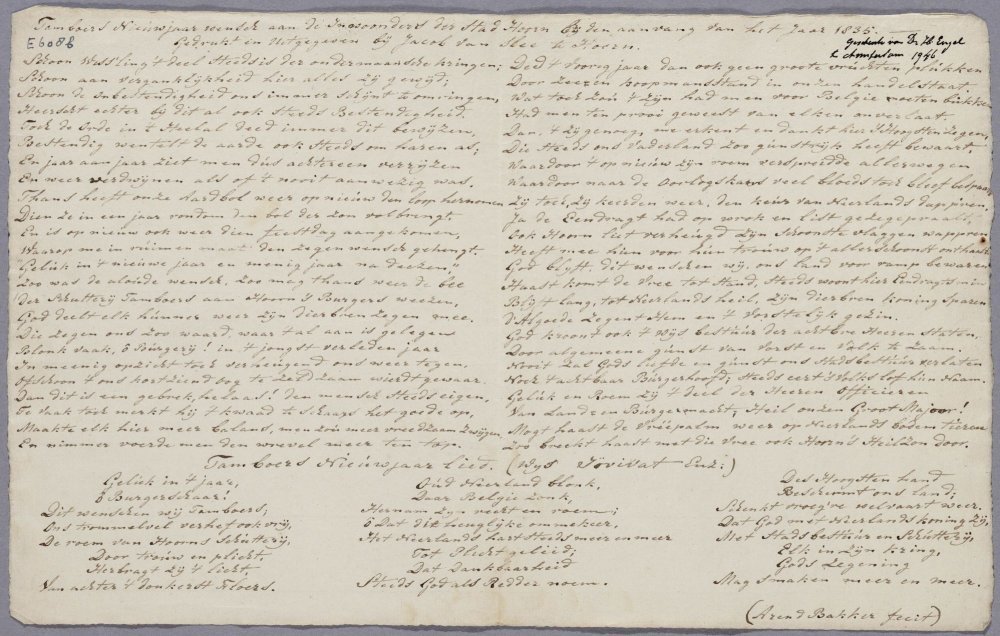 Tamboers Nieuwjaar wensch aan de Inwoonders der Stad Hoorn by den aanvang van het Jaar 1835.
Gedrukt en Uitgegeven bij Jacob van Stee te Hoorn.
E608b
Geschenk van Dr. H. Engel
te Amsterdam 1946
Schoon Wissling 't deel Steeds is der ondermaansche kringen;
Schoon aan verganklijkheid hier alles zij gewijd;
Schoon de Onbestendigheid ons immer schijnt te omringen,
Heerscht echter by dit al ook Steeds Bestendigheid.
Toch de Orde in 't Heelal deed immer dit bewijzen,
Bestendig wentelt de aarde ook Steeds om haren as;
En jaar aan jaar ziet men dus achtereen verrijzen
En weer verdwijnen als of 't nooit aanwezig was.
Thans heeft onze Aardbol weer op nieuw den loop hernomen
Dien ze in een jaar rondom den bol der zon volbrengt
En is op nieuw ook weer dien feestdag aangekomen,
Waarop me in ruimen maat den zegenwensch gehengt.
Geluk in 't nieuwe jaar en menig jaar na deezen,
Zoo was de aloude wensch, zoo mag thans weer de bee
der Schuttery Tamboers aan Hoorn's Burgers weezen,
God deelt elk hunner weer zijn dierbren zegen mee.
Die Zegen ons zoo waard, waar 't al aan is gelegen
Blonk vaak, ô Burgery! in 't jongst verleden jaar
In meenig opzicht toch verheugend ons weer tegen,
Ofschoon 't ons kortziend oog te zeldzaam wierdt gewaar.
Dan dit is een gebrek, helaas! den mensch Steeds eigen,
Te vaak toch merkt hij 't kwaad te schaars het goede op,
Maakte elk hier meer balans, men zou meer vreedzaam zwijgen,
En nimmer voerde men den wrevel meer ten top.
Deed 't voorig jaar dan ook geen groote vruchten plukken
Door zeeren koopmansstand in onzen handelstaat.
Wat toch zou 't zijn had men voor Belgie moeten bukken
Had men ten prooi geweest van elken onverlaat.
Dan, 't zij genoeg, me erkent en dankt hier 's Hoogsten Zegen,
Die Steeds ons Vaderland zoo gunstrijk heeft bewaart,
Waardoor 't op nieuw zijn roem verspreidde allerwegen
Waardoor naar de Oorlogskans veel bloeds toch bleef bespaard
Zij toch, zij keerden weer, den keur van Neerlands dapp'ren
Ja de Eendragt had op wrok en list gezegepraalt,
Ook Hoorn liet verheugd zijn schoonste vlaggen wapp'ren
Heeft mee hun voor hun trouw op 't allerschoonst onthaalt
God blyft, dit wenschen wij, ons land voor ramp bewaren
Haast komt de Vree tot stand, Steeds woont hier Eendragt's min
Blijft lang, tot Neerlands heil, zijn dierbren koning sparen
d'Algoede Zegent Hem en 't Vorstelijk gezin.
God kroont ook 't wijs bestuur der achtbre Heeren Staten
Door algemeene gunst van Vorst en Volk te zaam
Nooit zal Gods liefde en gunst ons Stadsbestuur verlaten
Noch 't achtbaar Burgerhoofd, Steeds eert 's Volks lof hun Naam.
Geluk en Roem zij 't deel der Heeren Officieren
Van Land en Burgermacht, Heil onzen Groot Majoor!
Mogt haast de Vreepalm weer op Neerlands bodem tieren
Zoo breekt haast met die Vree ook Hoorn's Heilzon door.
Tamboers Nieuwjaar Lied. (Wys Iövivat Enz:)
Geluk in 't jaar,
ô Burgerschaar!
Dit wenschen wij Tamboers;
Ons trommelvel verhef ook vrij,
De roem van Hoorns Schutterij,
Door trouw en plicht,
Herbragt zij 't licht
Van achter 't donkerst Floers.
Oud Neerland blonk,
Daar Belgie zonk,
Hernam zyn recht en roem;
ô Dat die heuglijke ommekeer,
Het Neerlands hart Steeds meer en meer
Tot Plicht geleid;
Dat Dankbaarheid
Steeds God als Redder noem.
Des Hoogsten hand
Beschermt ons land;
Schenkt vroeg're welvaart weer.
Dat God met Neerlands koning zij,
Met Stadsbestuur en Schutterij,
Elk in zijn kring,
Gods Zegening
Mag smaken meer en meer.
(Arend Bakker fecit)